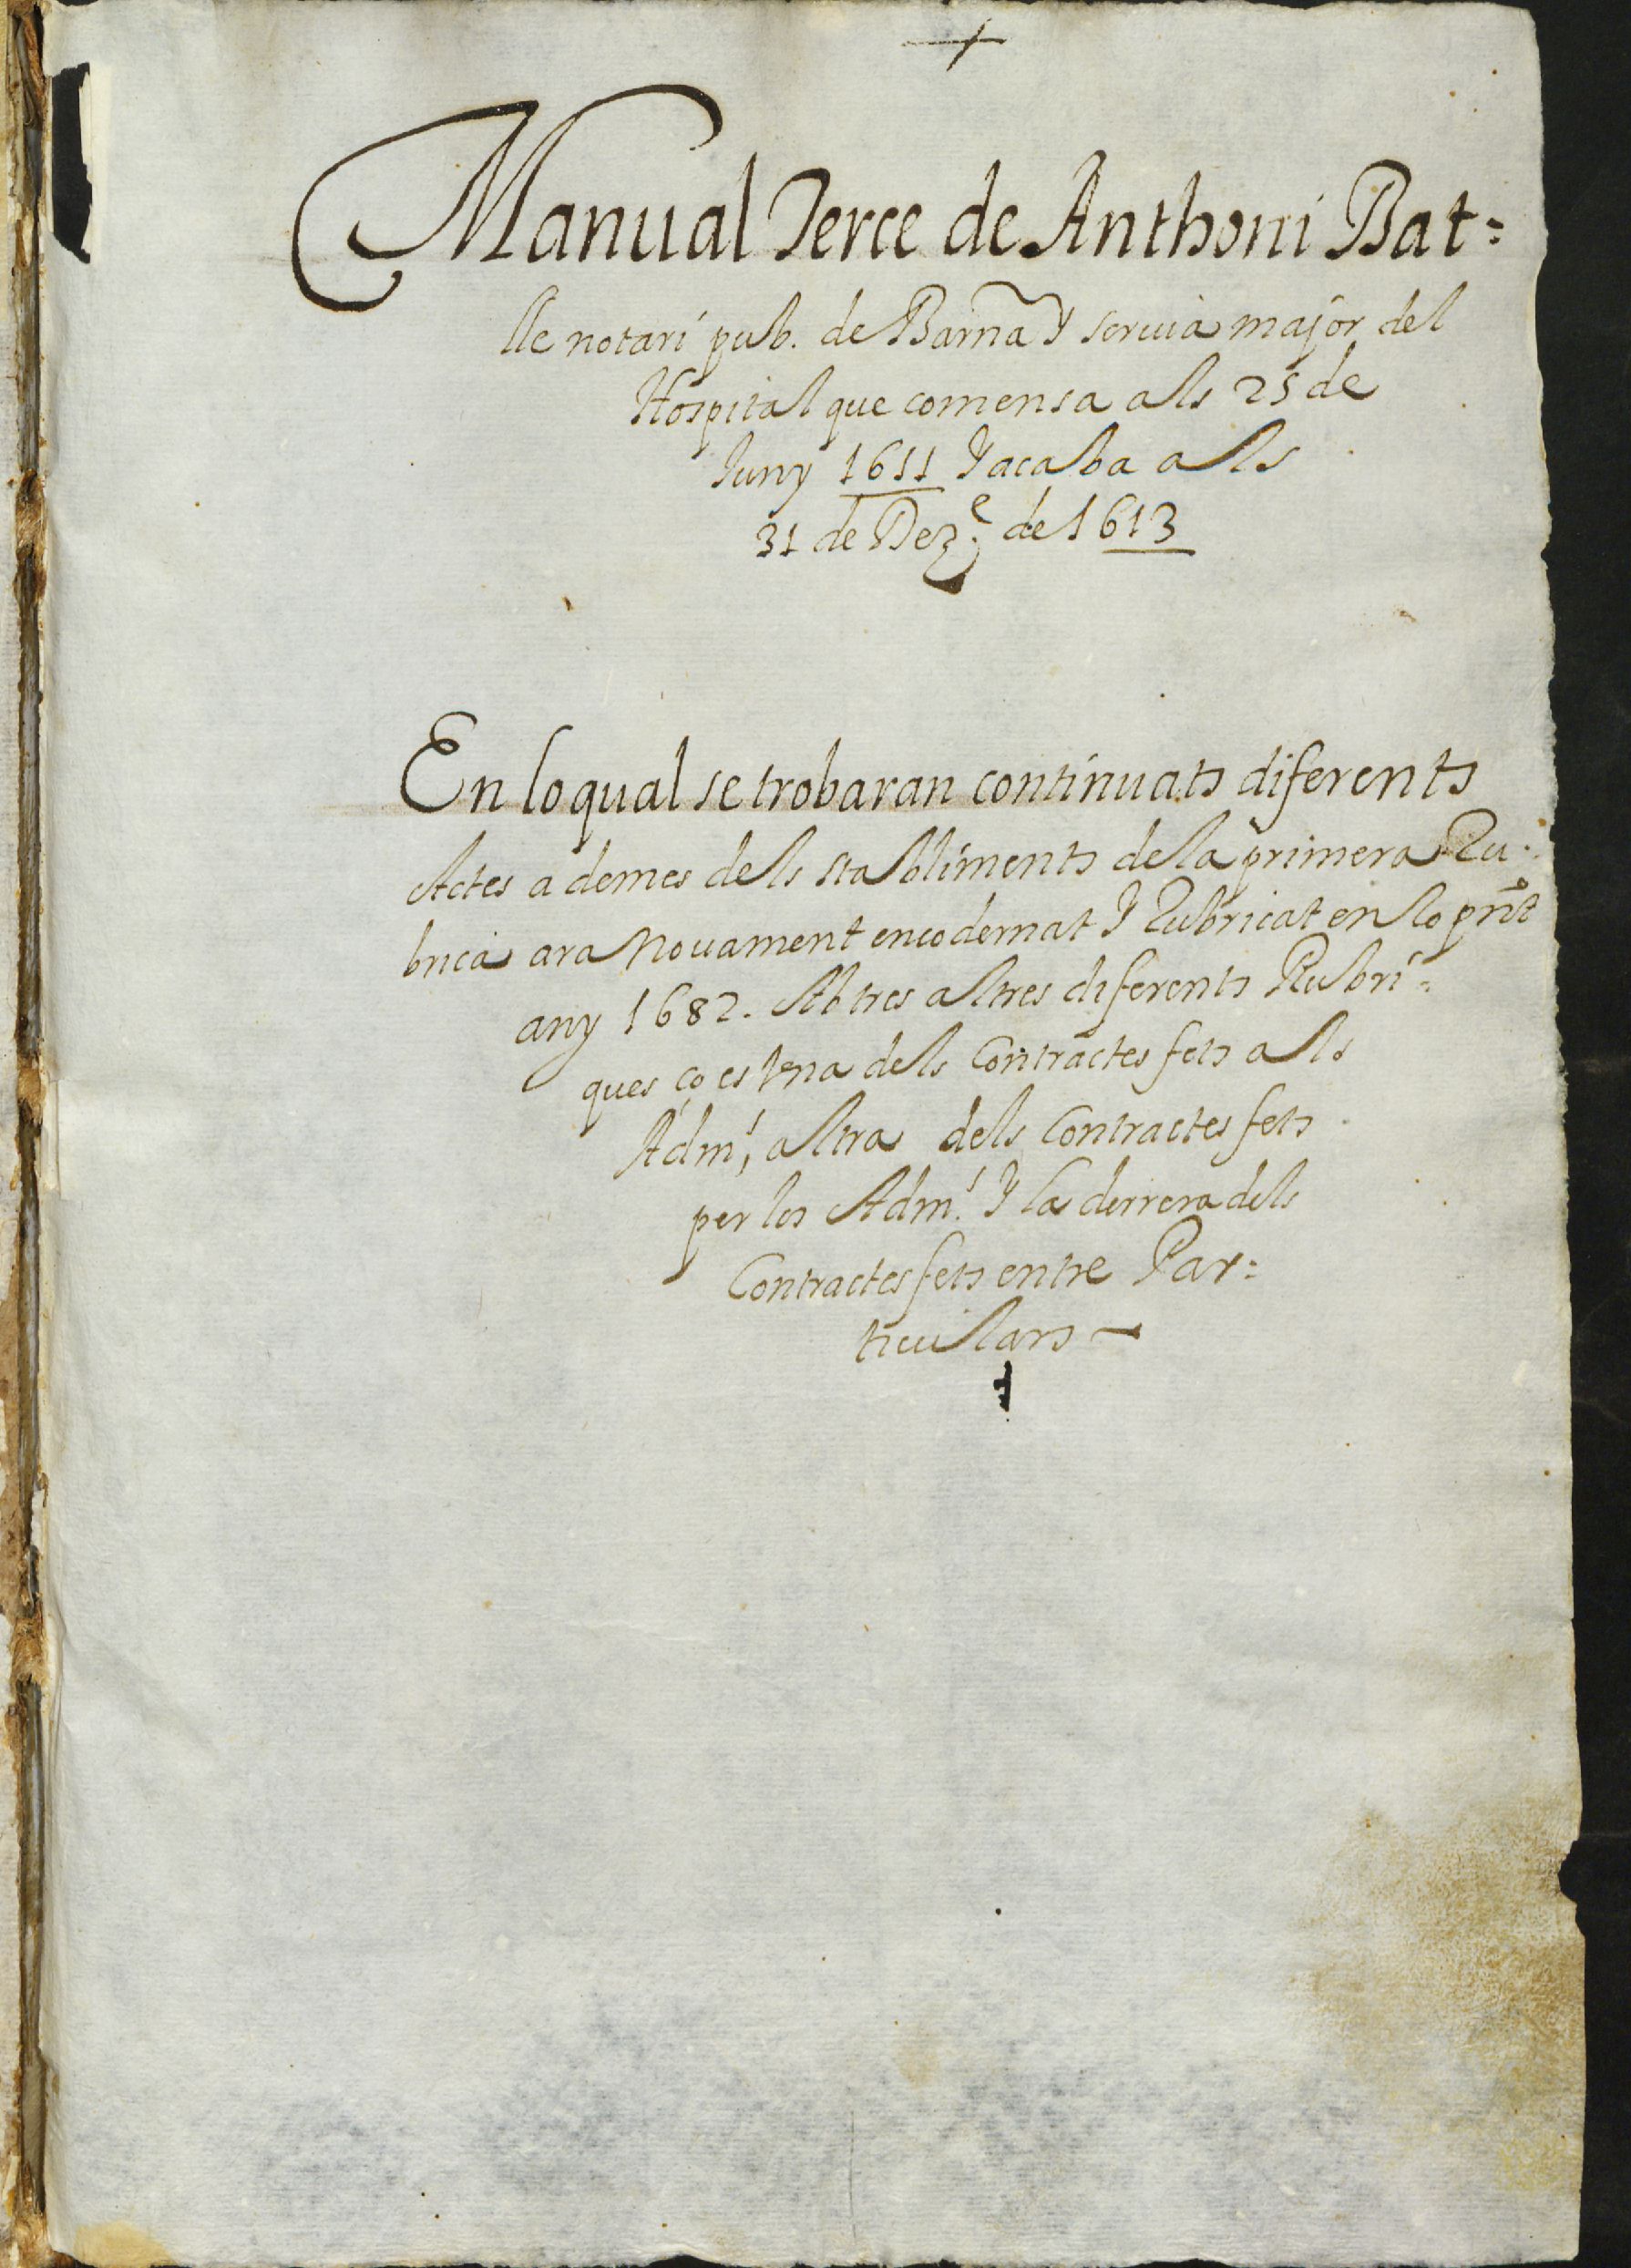 Manual Terce de Anthoni Bat=
lle notari pub. de Barña Y scriuà major del
Hospital que comensa als 25 de
Juny 1611 Y acaba als
31 de Dez.e de 1613
En lo qual se trobaran continuats diferents
Actes a demes dels stabliments de la primera Ru-
brica ara Nouament encodernat Y Rubricat en lo pñt
any 1682. Ab tres altres diferents Rubri=
ques ço es Vna dels Contractes fets als
Adm.s, altra dels Contractes fets
per los Adm.s Y la derrera dels
Contractes fets entre Par=
ticulars